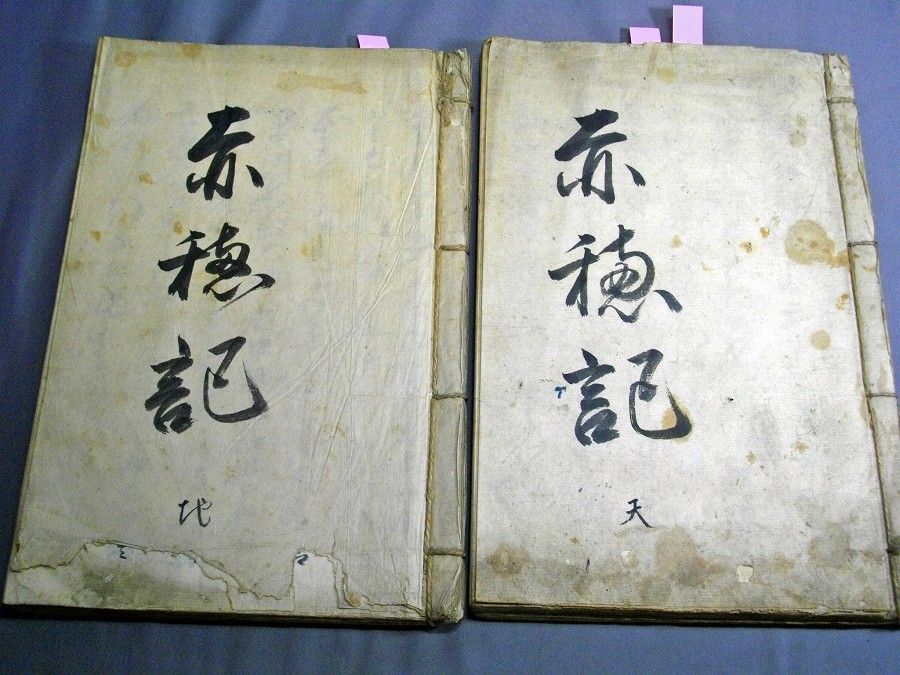 赤穂記
天
赤穂記
地